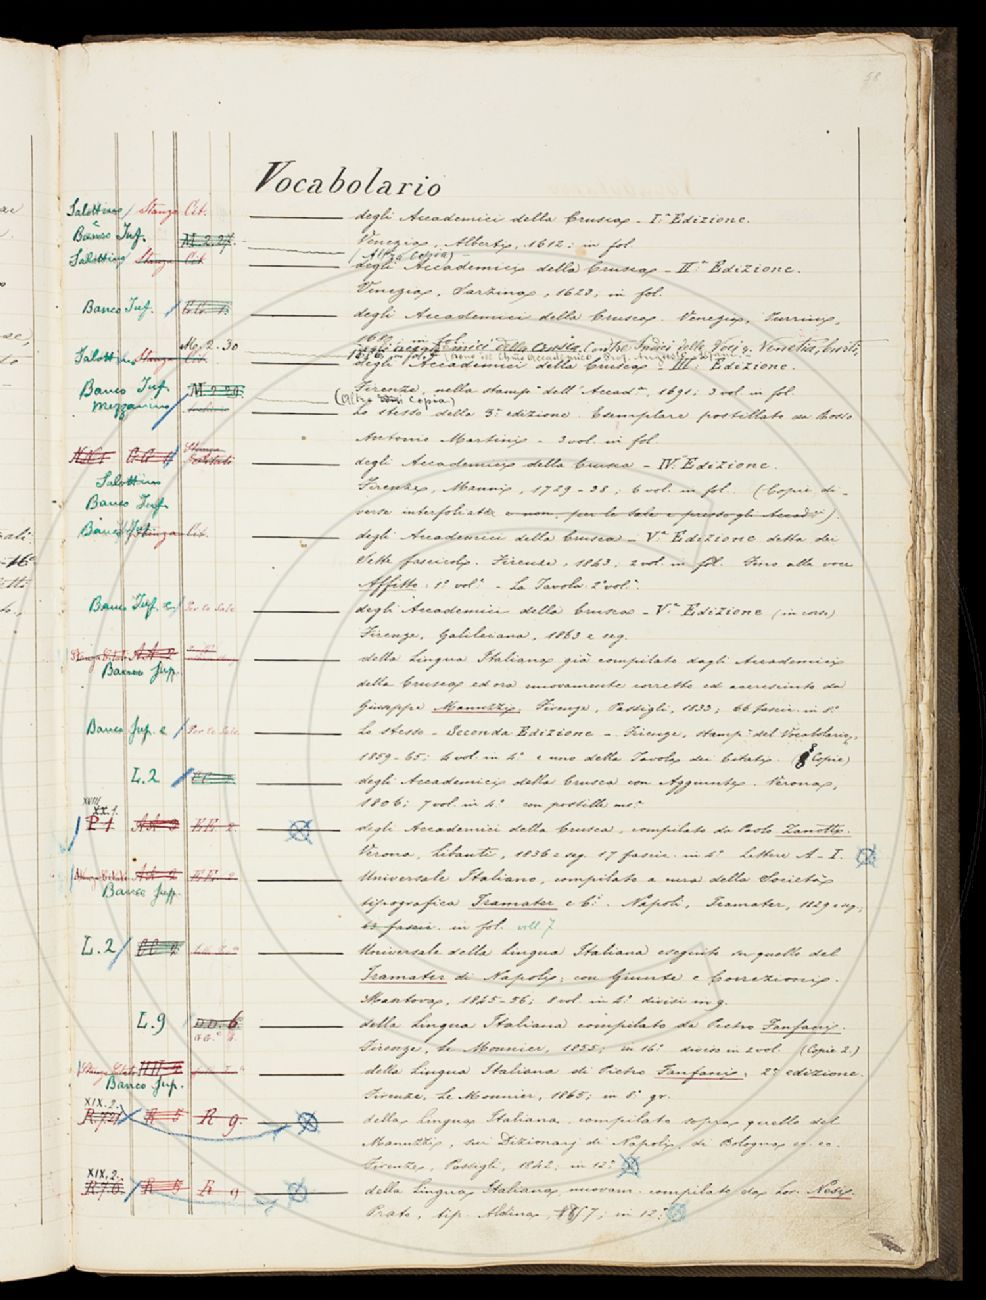 58
Vocabolario
Salottino / Stanza Cit. degli Accademici della Crusca - I.ª Edizione.
Banco Inf. M.2.27. Venezia, Alberti, 1612; in fol.
(Altra Copia)
Salottino Stanza Cit. degli Accademici della Crusca - II.ª Edizione.
Venezia, Sarzina, 1623, in fol.
Banco Inf. / degli Accademici della Crusca. Venezia,
Mo. 2. 30
Salottino Stanza Cit. degli Accademici della Crusca III.ª Edizione.
Banco Inf. M.2.28. Firenze, nella stamp.ª dell'Accad.ª, 1691; 3 vol. in fol.
(Altra Copia)
Mezzanino Lo stesso della 3.ª edizione. Esemplare postillato da
Antonio Martini - 3 vol. in fol.
degli Accademici della Crusca - IV.ª Edizione.
Salottino Firenze, Manni, 1729-38; 6 vol. in fol. (Copie di-
Banco Inf. verse interfoliate e non, per le Sale e presso gli Accad.ci)
Banco Inf. Stanza Cit. degli Accademici della Crusca - V.ª Edizione detta dei
Sette fascicoli. Firenze, 1843; 2 vol. in fol. Fino alla voce
Affitto: 1.º vol.º - La Tavola: 2.º vol.º
Banco Inf. e Per le Sale degli Accademici della Crusca - V.ª Edizione (in corso)
Firenze, Galileiana, 1863 e seg.
AA 2 della Lingua Italiana già compilato dagli Accademici
Banco Sup. della Crusca ed ora nuovamente corretto ed accresciuto da
Giuseppe Manuzzi. Firenze, Passigli, 1833; 66 fascic. in 8.º
Banco Sup. e / Per le Sale Lo stesso - Seconda Edizione - Firenze, stamp.ª del Vocabolario,
1859-65; 4 vol. in 4.º e uno della Tavola dei Citati. (8 Copie)
L.2 / degli Accademici della Crusca con Aggiunte. Verona,
1806; 7 vol. in 4.º con postille ms.e
XVIII
XX.1.
P 1 degli Accademici della Crusca, compilato da Paolo Zanotti.
Verona, Libanti, 1836 e seg. 17 fascic. in 4.º Lettere A-I.
Universale Italiano, compilato a cura della Società
Banco Sup. tipografica Tramater e C.i Napoli, Tramater, 1829 e seg.;
fascic. in fol. voll 7
L.2 / Universale della Lingua Italiana eseguito su quello del
Tramater di Napoli; con Giunte e Correzioni.
Mantova, 1845-56; 8 vol. in 4.º divisi in 9.
L.9 DD. 6. della Lingua Italiana compilato da Pietro Fanfani.
Firenze, Le Monnier, 1855; in 16.º diviso in 2 vol. (Copie 2.)
della Lingua Italiana di Pietro Fanfani, 2.ª edizione.
Banco Sup. Firenze, Le Monnier, 1865; in 8.º gr.
XIX.2.
R 5 R 9. della Lingua Italiana, compilato sopra quello del
Manuzzi, sui Dizionarj di Napoli, di Bologna ec. ec.
Firenze, Passigli, 1842, in 12.º
XIX.2.
R 5 R 9 della Lingua Italiana nuovam. compilato da Nesi.
Prato, tip. Aldina, in 12.º